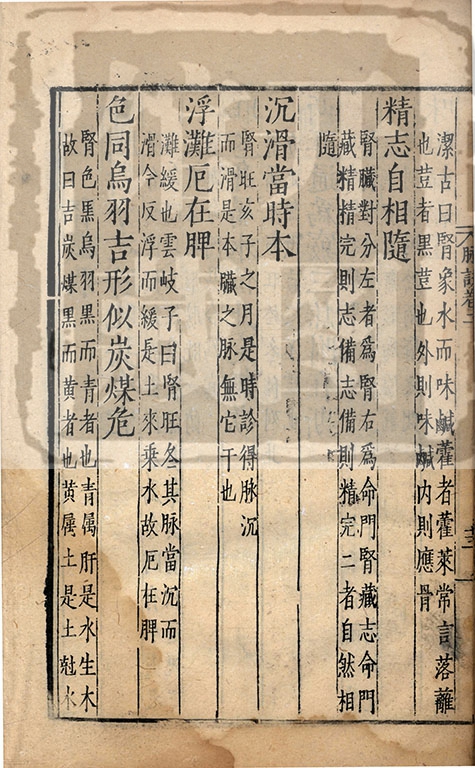 脉訣卷三
十三
潔古曰腎象水而味鹹藿者藿菜常言落蘺
也荳者黒荳也外則味鹹内則應骨
精志自相隨
腎臟對分左者爲腎右爲命門腎藏志命門
藏精精完則志備志備則精完二者自然相
隨
沉滑當時本
腎旺亥子之月是時診得脉沉
而滑是本臟之脉無它干也
浮灘厄在脾
灘緩也雲岐子曰腎旺冬其脉當沉而
滑今反浮而緩是土來乗水故厄在脾
色同烏羽吉形似炭煤危
腎色黒烏羽黒而青者也青属肝是水生木
故曰吉炭煤黒而黄者也黄属土是土尅水